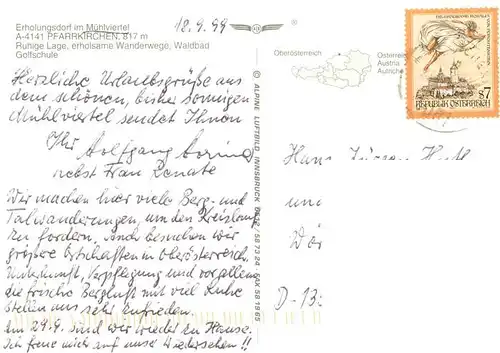 Erholungsdorf im Mühlviertel
A-4141 PFARRKIRCHEN, 817 m
Ruhige Lage, erholsame Wanderwege, Waldbad
Golfschule
18.9.99
Herzliche Urlaubsgrüße aus
dem schönen, bisher sonnigen
Mühlviertel sendet Ihnen
Ihr Wolfgang
nebst Frau Renate
Wir machen hier viele Berg- und
Talwanderungen, um den Kreislauf
zu fordern. Auch besuchen wir
größere Ortschaften in Oberösterreich.
Unterkunft, Verpflegung und vor allem
die frische Bergluft mit viel Ruhe
stellen uns sehr zufrieden.
Am 29.9. sind wir wieder zu Hause.
Ich freue mich auf unser Wiedersehen!!
© ALPINE LUFTBILD, INNSBRUCK
Oberösterreich
Österreich
Austria
Autriche
S7
REPUBLIK ÖSTERREICH
Hans Jürgen
und
D-13